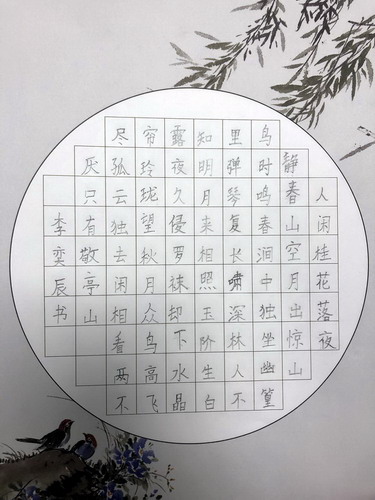 人闲桂花落夜
静春山空月出惊山
鸟时鸣春涧中独坐幽篁
里弹琴复长啸深林人不
知明月来相照玉阶生白
露夜久侵罗袜却下水晶
帘玲珑望秋月众鸟高飞
尽孤云独去闲相看两不
厌只有敬亭山
李奕辰书